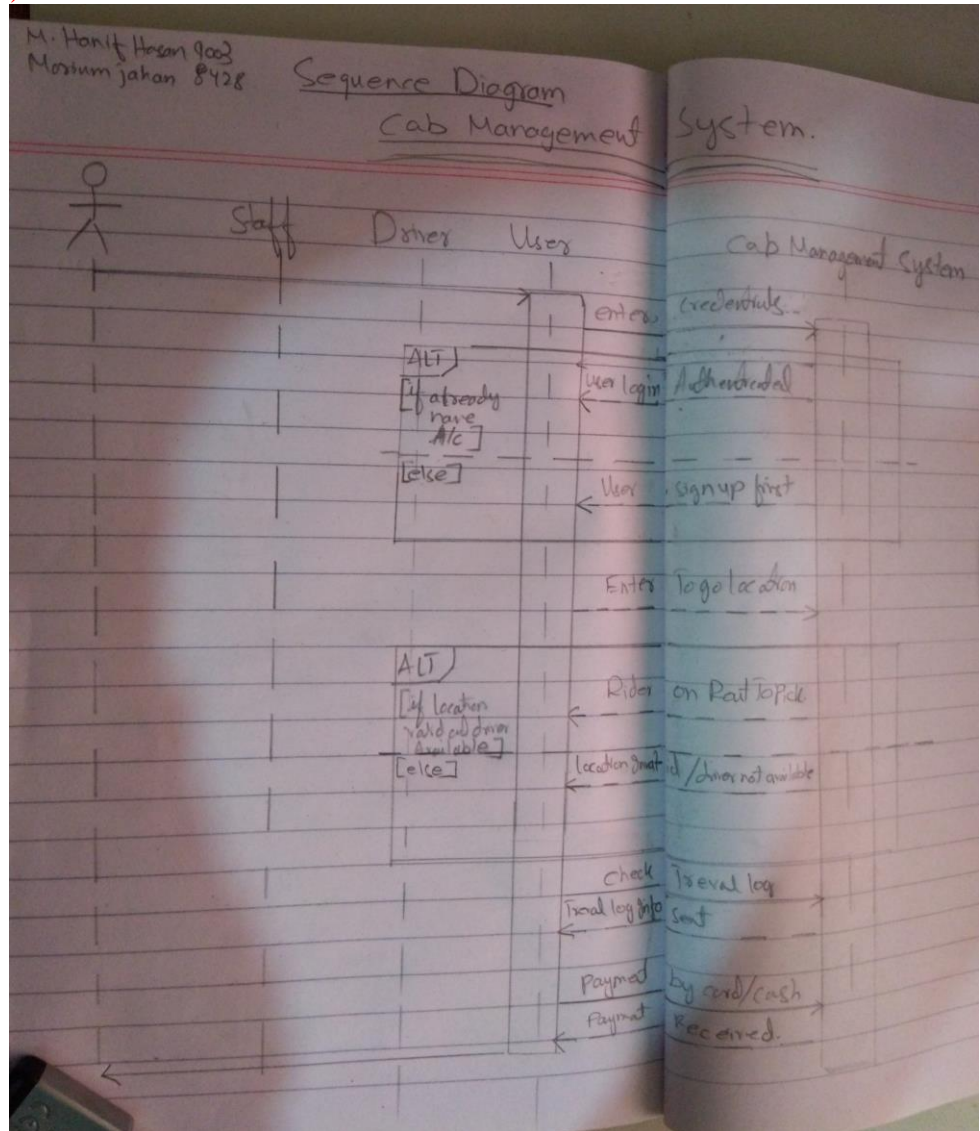 M. Hanif Hasan 9003
Morium jahan 8428
Sequence Diagram
Cab Management System.
Staff Driver User Cab Management System
enter credentials..
ALT
[if already have A/c]
User login Authenticated
[else]
User signup first
Enter To go location
ALT
[if location valid and driver Available]
Rider on Rout To Pick
[else]
location Invalid / driver not available
Check Treval log
Traval log Info sent
Payment by card/cash
Payment Received.